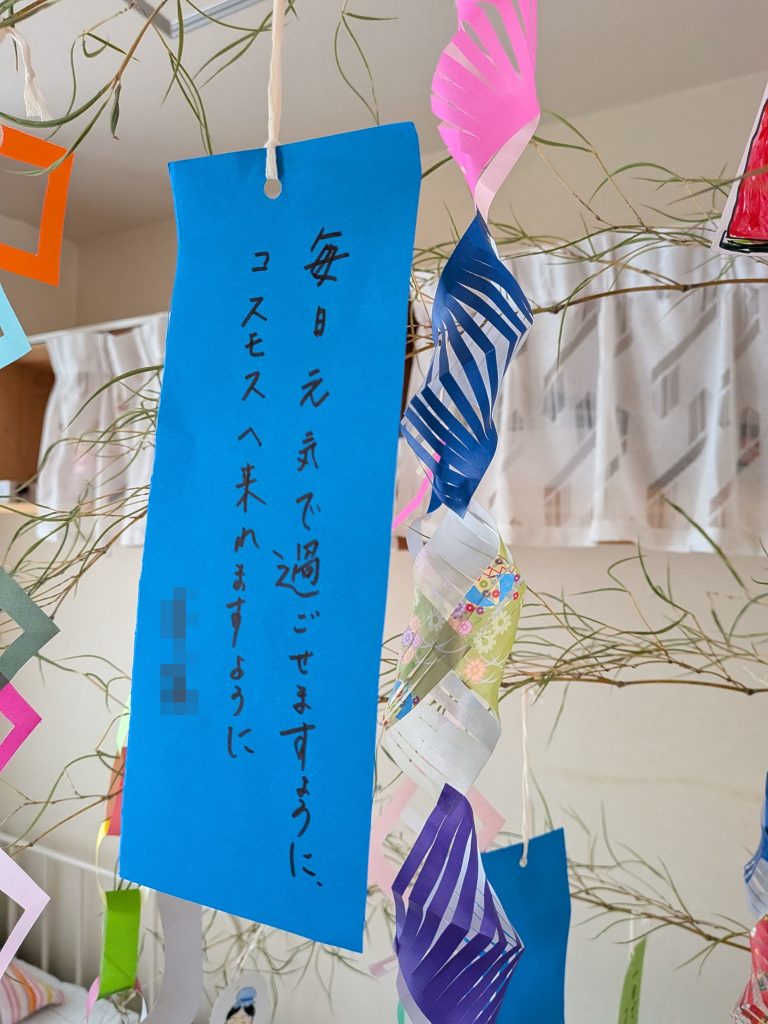 毎日元気で過ごせますように、
コスモスへ来れますように